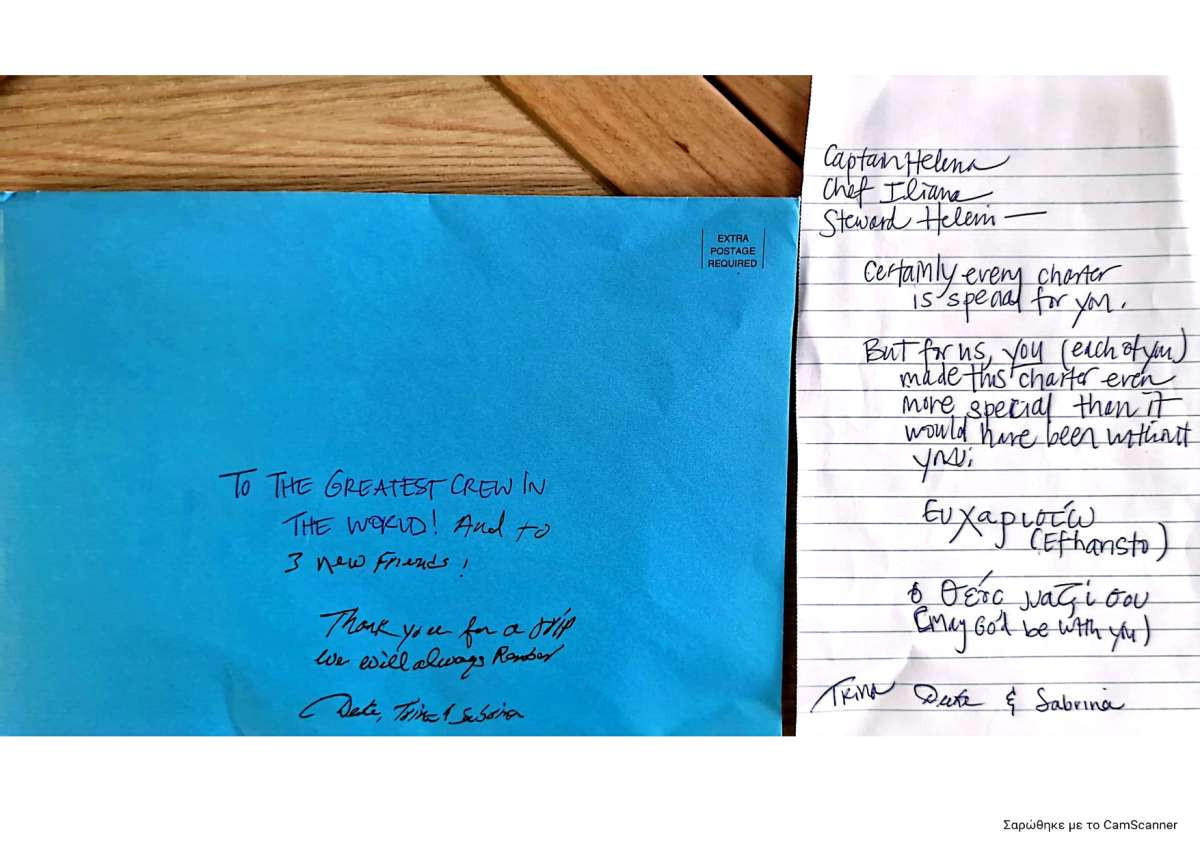 EXTRA
POSTAGE
REQUIRED
TO THE GREATEST CREW IN
THE WORLD! And to
3 new Friends!
Thank you for a trip
we will always Rember
Trina & Sabrina
Captain Helena
Chef Iliana
Steward Heleni —
Certainly every charter
is special for you.
But for us, you (each of you)
made this charter even
more special than it
would have been without
you.
Ευχαριστώ
(Efharisto)
ο Θεός μαζί σου
(May God be with you)
Trina & Sabrina
Σαρώθηκε με το CamScanner